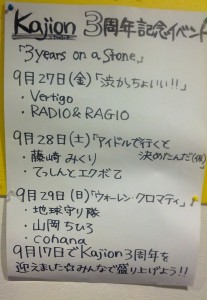 Kajion 3周年記念イベント
「3years on a Stone」
9月27日(金)「渋からちょいい!!」
・Vertigo
・RADIO&RAGIO
9月28日(土)「アイドルで行くと
決めたんだ(仮)
・藤崎みくり
・てっしんとエクボて
9月29日(日)「ウォーレン・クロマティ」
・地球守り隊
・山岡ちひろ
・cohana
9月17日でKajion3周年を
迎えました☆みんなで盛り上げよう!!